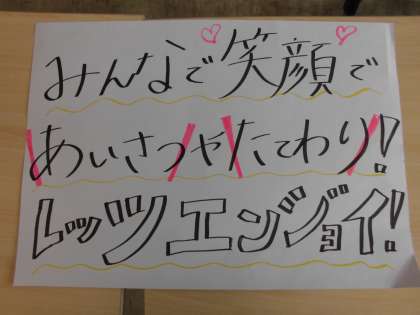 みんなで笑顔で
あいさつやたてわり!
レッツエンジョイ!